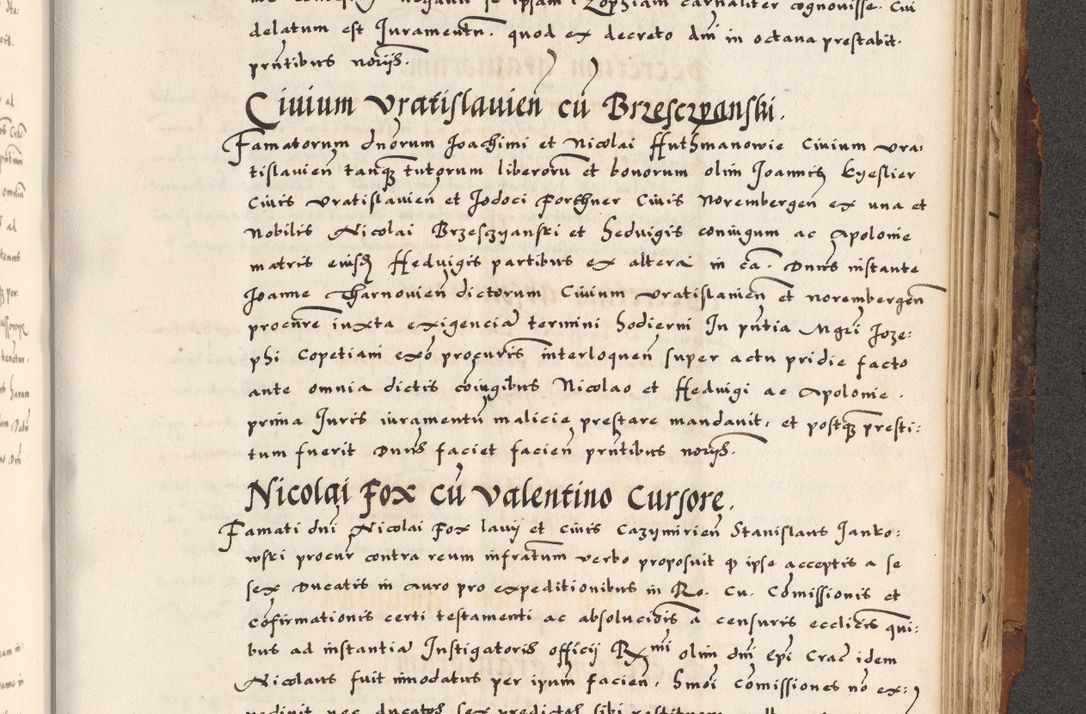 delatum est Iuramentũ. quod ex decreto dnĩ in octava prestabit.
pñtibus notrijs.
Civium Vratislavien̄ cũ Brzesczyanski.
Famatorum dnõrum Joachimi et Nicolai Huthmanowie Civium Vra-
tislavien̄ tanq̃ tutorum liberorũ et bonorum olim Joannis Kyeslier
Civis Vratislavien̄ et Jodoci Porthner Civis Norembergen̄ ex una et
Nobilis Nicolai Brzesczyanski et Hedvigis coniugum ac Apolonie
matris eiusd̃ Hedvigis partibus ex altera in cã. Dnus instante
Joanne Tharnovien̄ dictorum Civium Vratislavien̄ et Norembergen̄
procurẽ iuxta exigenciã termini hodierni In pñtia Mgri Joze-
phi Copetiani exõ procuris interloquen̄ super actu pridie facto
ante omnia dictis coiugibus Nicolao et Hedvigi ac Apolonie.
prima Iuris iuramentũ malicie prestare mandavit, et postq̃ presti:
tum fuerit Dnus faciet facien̄ pñtibus notrijs.
Nicolai Fox cũ Valentino Cursore.
Famati dni Nicolai Fox lavij et Civis Cazymirien̄ Stanislaus Janko:
wski procur̃ contra reum infratum verbo proposuit q̃ ipse acceptis a se
sex Ducatis in auro pro expeditionibus in Ro. Cu. Comissionis et
cõfirmationis certi testamenti ac absolucionis a censuris ecclicis qui:
bus ad instantiã Instigatoris officij Rmi olim dni Epi Crac̃ idem
Nicolaus fuit innodatus per ipum facien̄. Hmoi Comissiones nõ ex: